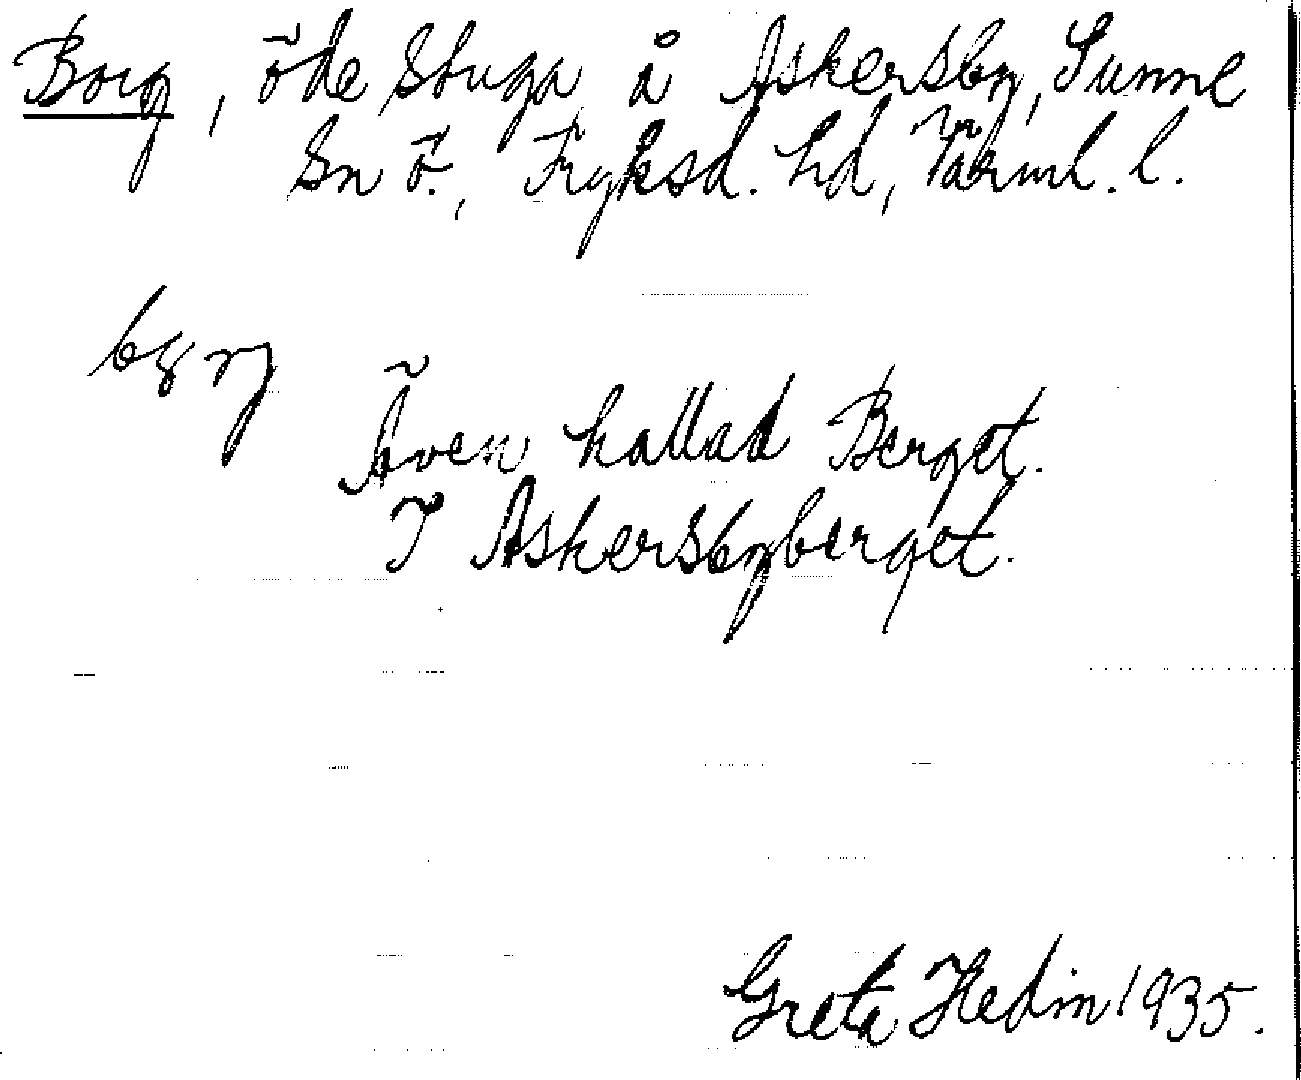 Borg, öde Stuga å Askersby, Sunne
Sn ö., Fryksd. hd, Värml. l.
Även kallad Berget.
I Askersbyberget.
Greta Hedin 1935.